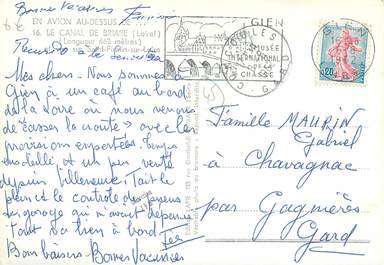 Bonnes Vacances
EN AVION AU-DESSUS DE
16. LE CANAL DE BRIARE (Loiret)
(Longueur 662 mètres)
St-Firmin-sur-Loire
GIEN
MUSÉE
INTERNATIONAL
DE LA
CHASSE
GARD
0,20
Mes chers. Nous sommes à
Gien à un café au bord
de la Loire où nous venons
de "casser la croûte" avec les
provisions emportées. Temps
ensoleillé et un peu venté
depuis Villeneuve. Fait le
plein et le contrôle des pneus
au garage qui n'avait
Tout va bien à bord
Bons baisers. Bonnes Vacances
Famille MAURIN
Gabriel
à Chavagnac
par Gagnières
Gard